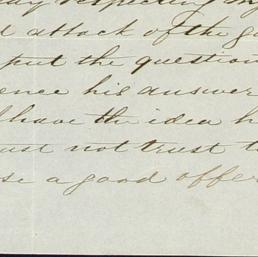 respecting my
attack of the
put the question
his answer
have the idea
not trust
a good offer